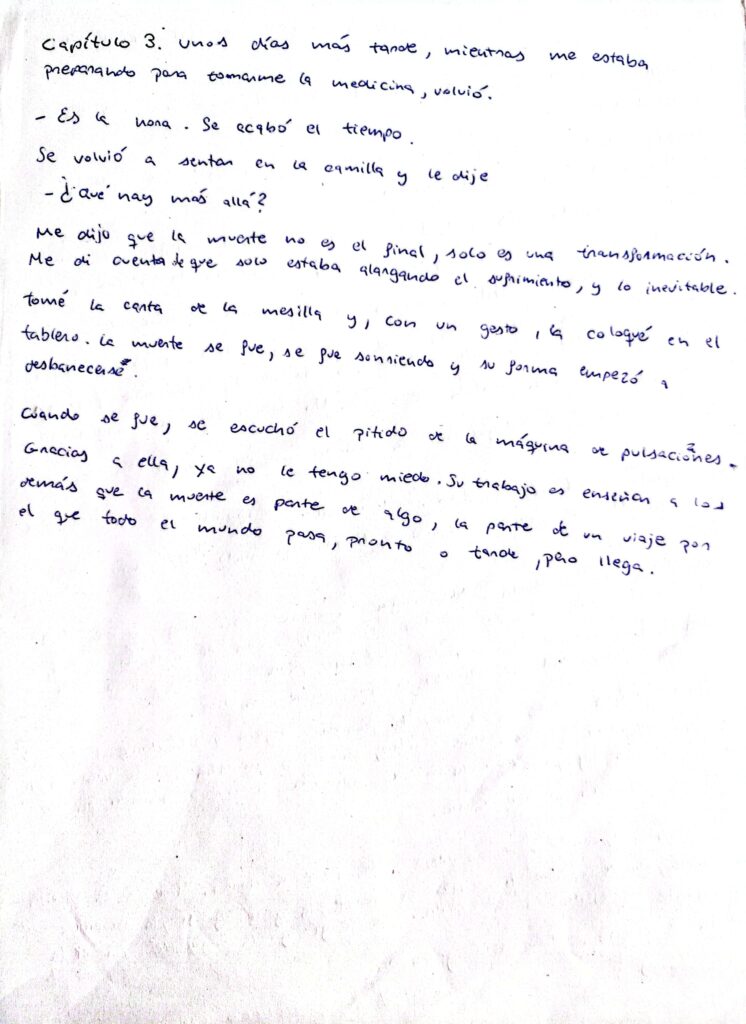 Capítulo 3. Unos días más tarde, mientras me estaba
preparando para tomarme la medicina, volvió.
- Es la hora. Se acabó el tiempo.
Se volvió a sentar en la camilla y le dije
- ¿Qué hay más allá?
Me dijo que la muerte no es el final, solo es una transformación.
Me di cuenta de que solo estaba alargando el sufrimiento, y lo inevitable.
Tomé la carta de la mesilla y, con un gesto, la coloqué en el
tablero. La muerte se fue, se fue sonriendo y su forma empezó a
desbanecerse.
Cuando se fue, se escuchó el pitido de la máquina de pulsaciones.
Gracias a ella, ya no le tengo miedo. Su trabajo es enseñar a los
demás que la muerte es parte de algo, la parte de un viaje por
el que todo el mundo pasa, pronto o tarde, pero llega.